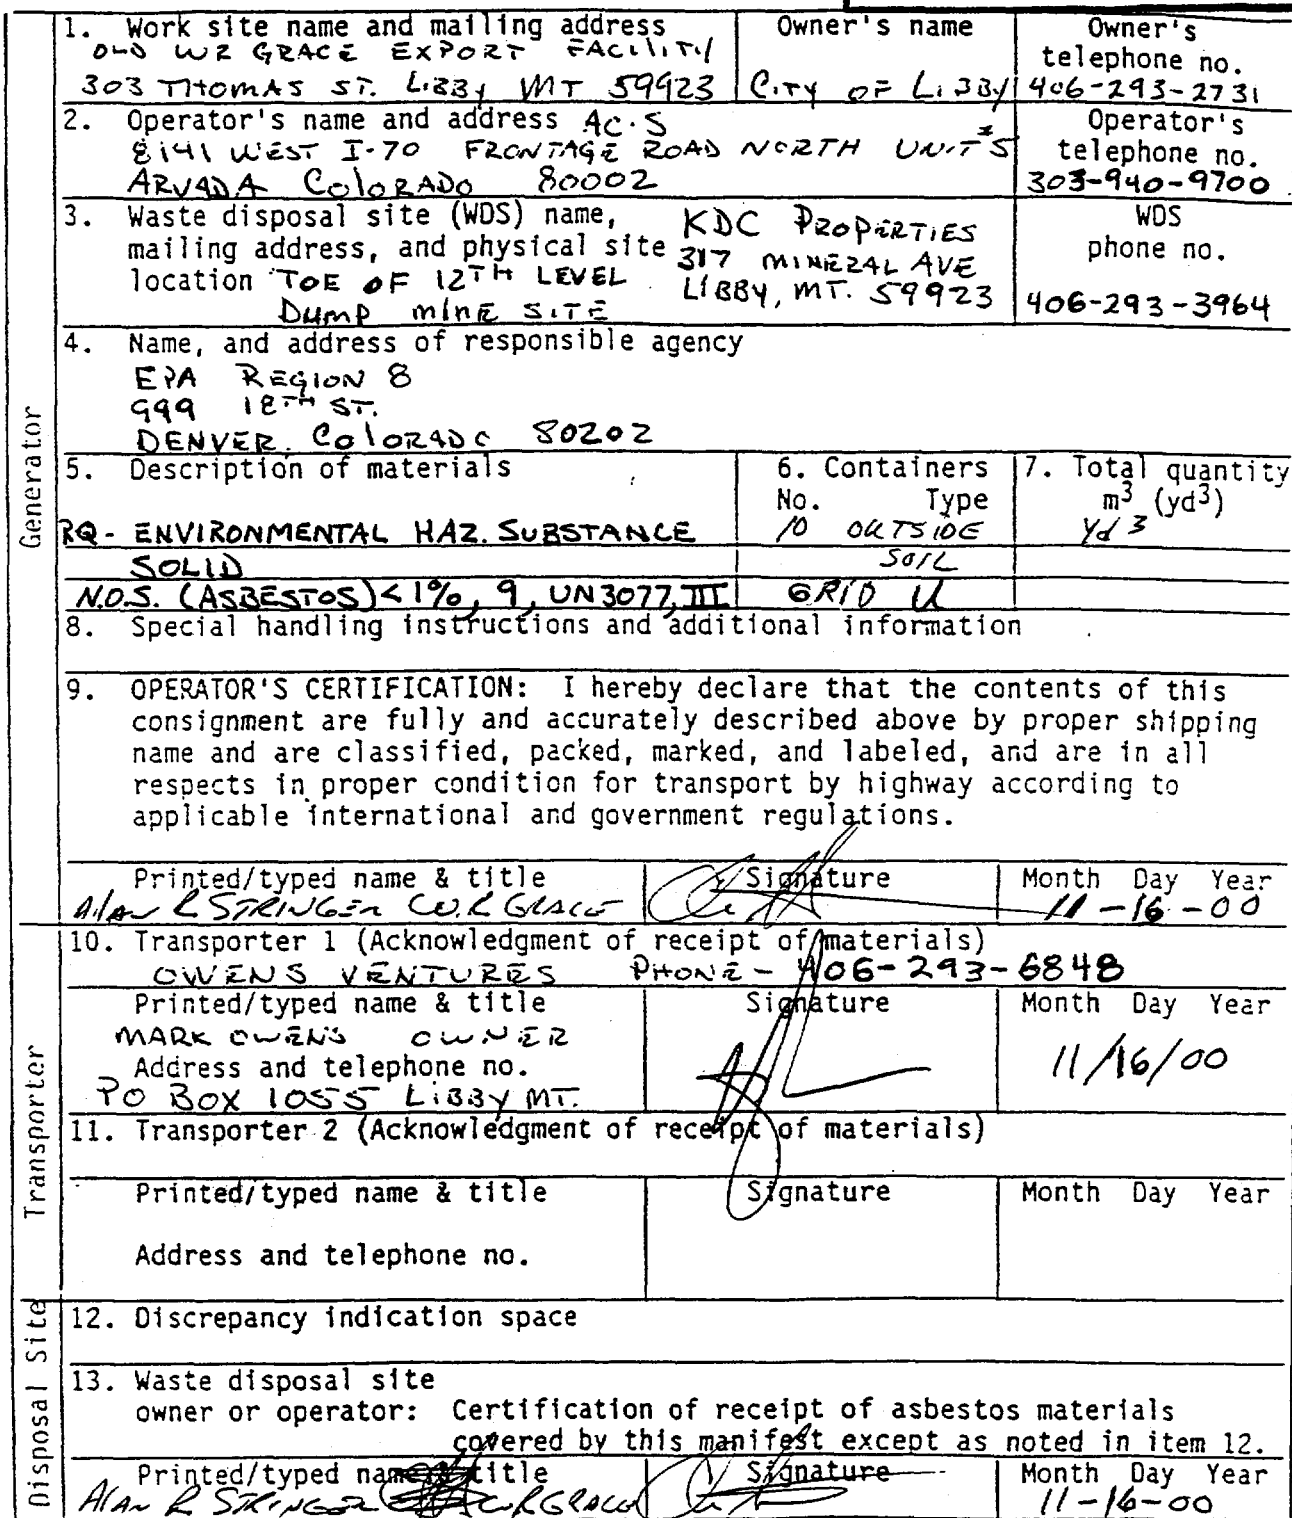 1. Work site name and mailing address
OLD WR GRACE EXPORT FACILITY
303 THOMAS ST. LIBBY MT 59923
Owner's name
CITY OF LIBBY
Owner's
telephone no.
406-293-2731
2. Operator's name and address AC.S
8141 WEST I-70 FRONTAGE ROAD NORTH UNIT #5
ARVADA COLORADO 80002
Operator's
telephone no.
303-940-9700
3. Waste disposal site (WDS) name,
mailing address, and physical site
location TOE OF 12TH LEVEL
DUMP MINE SITE
KDC PROPERTIES
317 MINERAL AVE
LIBBY, MT. 59923
WDS
phone no.
406-293-3964
4. Name, and address of responsible agency
EPA REGION 8
999 18TH ST.
DENVER, COLORADO 80202
Generator
5. Description of materials
RQ - ENVIRONMENTAL HAZ. SUBSTANCE
SOLID
N.O.S. (ASBESTOS) < 1%, 9, UN3077, III
6. Containers
No. Type
10 OUTSIDE
SOIL
GRID U
7. Total quantity
m3 (yd3)
Yd 3
8. Special handling instructions and additional information
9. OPERATOR'S CERTIFICATION: I hereby declare that the contents of this
consignment are fully and accurately described above by proper shipping
name and are classified, packed, marked, and labeled, and are in all
respects in proper condition for transport by highway according to
applicable international and government regulations.
Printed/typed name & title
Alan R STRINGER W.R GRACE
Signature
Month Day Year
11-16-00
10. Transporter 1 (Acknowledgment of receipt of materials)
OWENS VENTURES PHONE - 406-293-6848
Printed/typed name & title
MARK OWENS OWNER
Address and telephone no.
PO BOX 1055 LIBBY MT.
Signature
Month Day Year
11/16/00
Transporter
11. Transporter 2 (Acknowledgment of receipt of materials)
Printed/typed name & title
Address and telephone no.
Signature
Month Day Year
12. Discrepancy indication space
Disposal Site
13. Waste disposal site
owner or operator: Certification of receipt of asbestos materials
covered by this manifest except as noted in item 12.
Printed/typed name & title
Alan R STRINGER W.R GRACE
Signature
Month Day Year
11-16-00